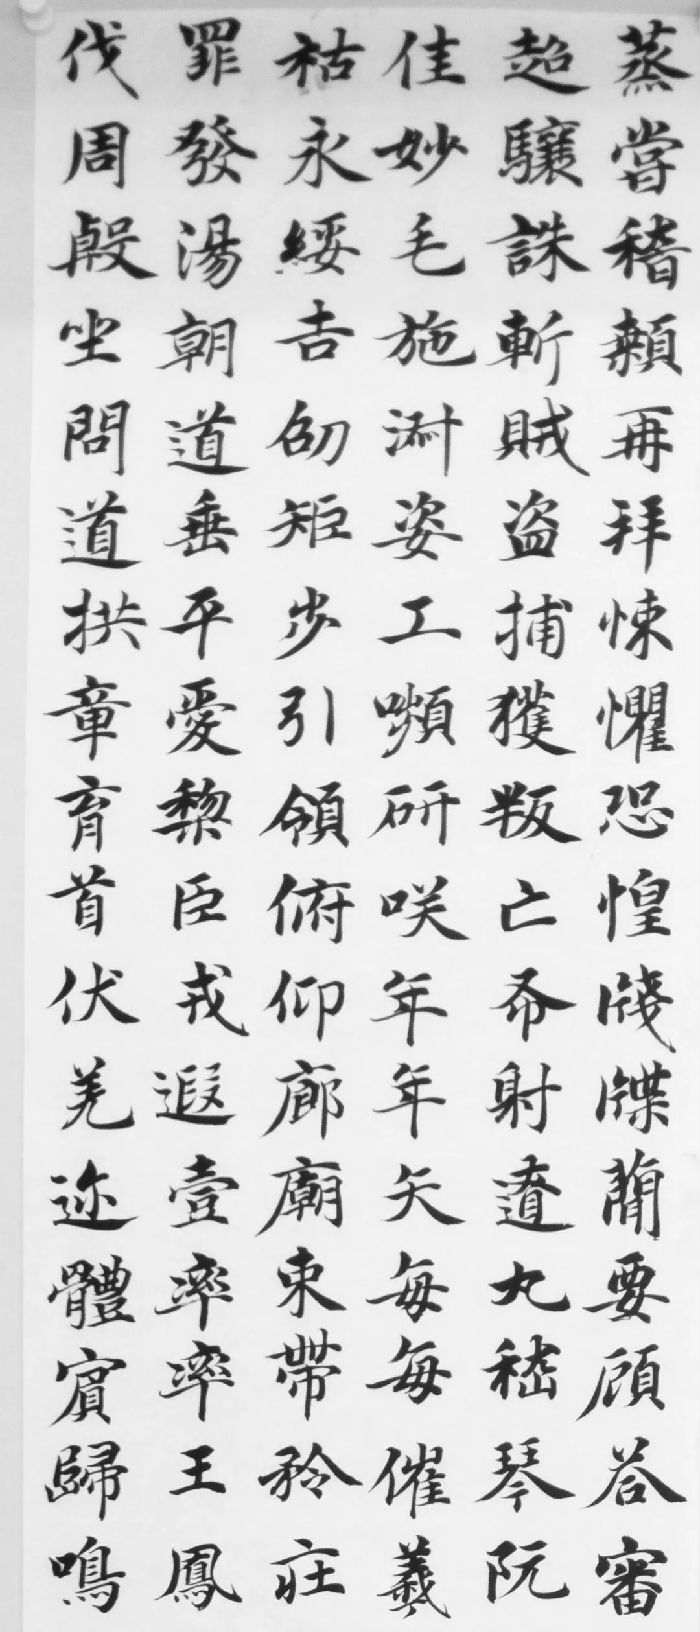 蒸嘗稽顙再拜悚懼恐惶牋牒簡要顧答審
超驤誅斬賊盜捕獲叛亡布射遼丸嵇琴阮
佳妙毛施淑姿工嚬研咲年年矢每每催羲
祜永綏吉劭矩步引領俯仰廊廟束帶矜莊
罪發湯朝道垂平愛黎臣戎遐壹率率王鳳
伐周殷坐問道拱章育首伏羌迩體賓歸鳴